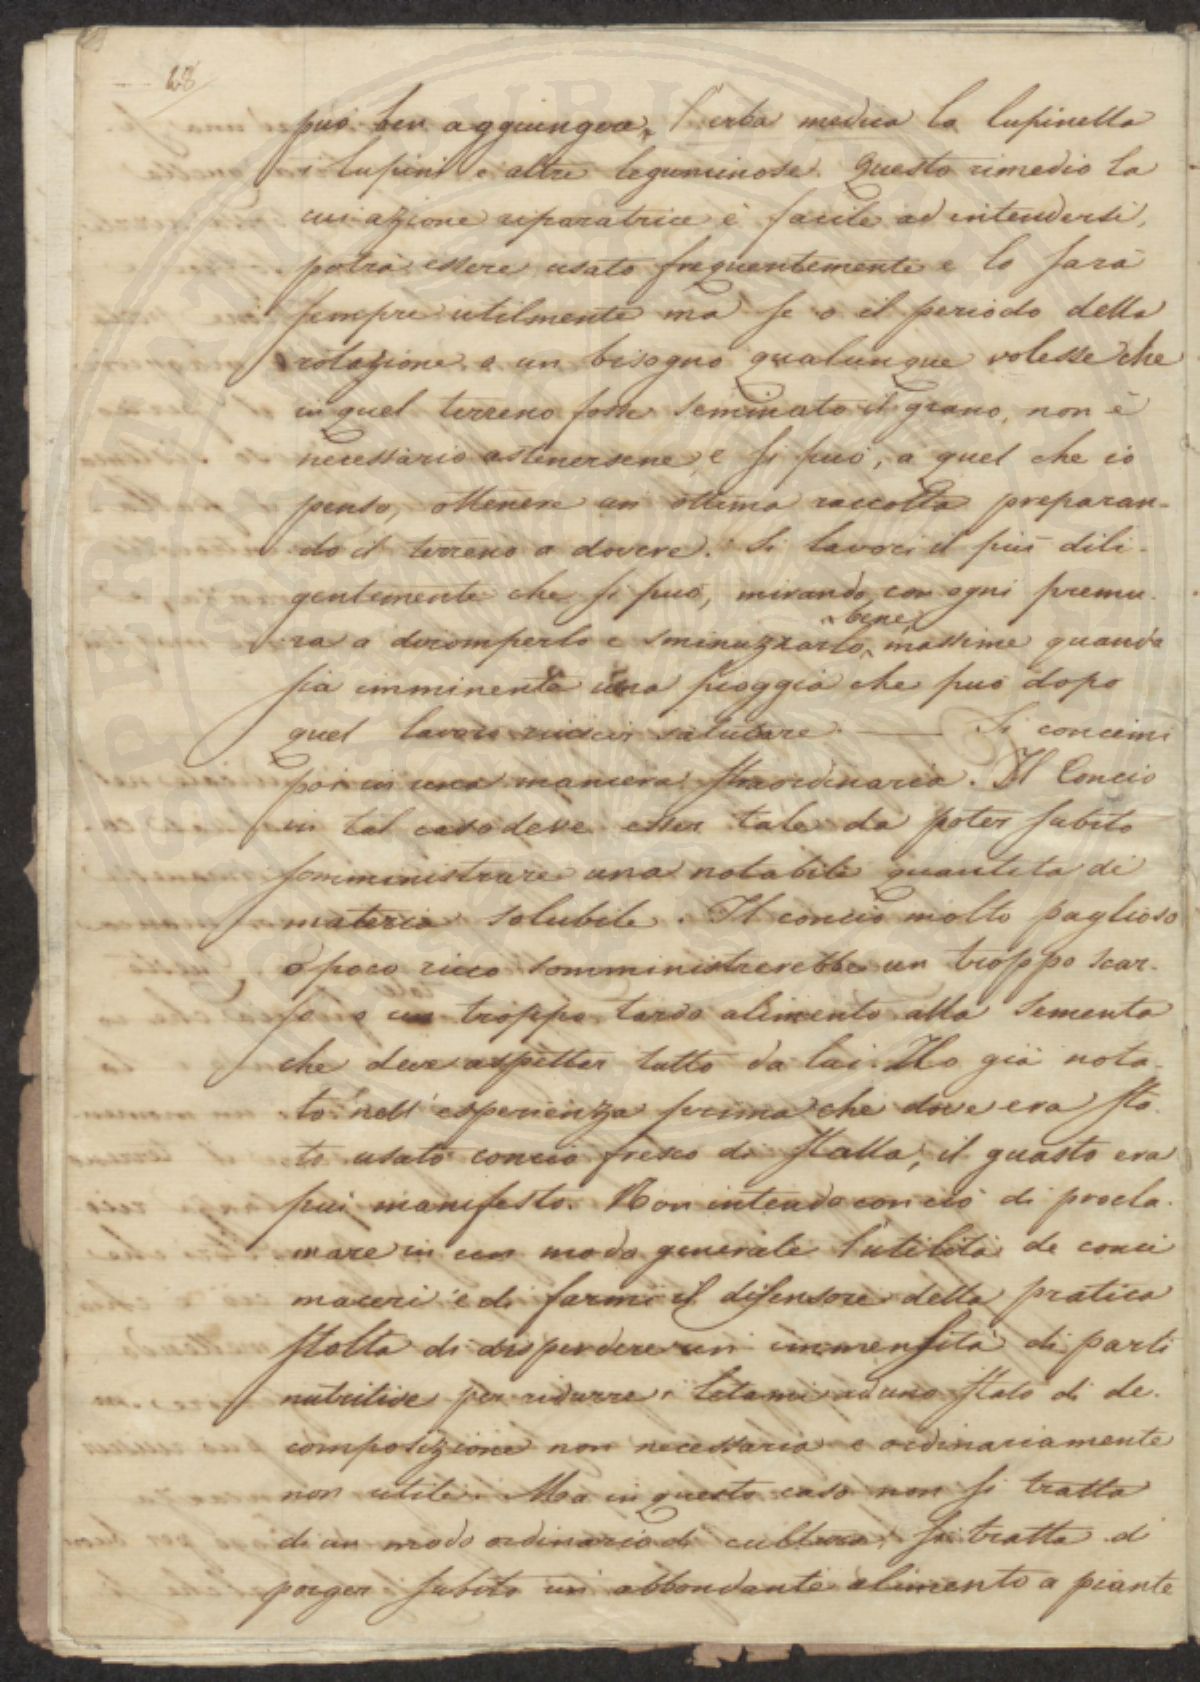 28
può ben aggiungere, l'erba medica la lupinella
i lupini e altre leguminose. Questo rimedio la
cui azione riparatrice è facile ad intendersi,
potrà essere usato frequentemente e lo sarà
sempre utilmente ma se o il periodo della
rotazione o un bisogno qualunque volesse che
in quel terreno fosse seminato il grano, non è
necessario astenersene, e si può, a quel che io
penso, ottenere un ottima raccolta preparan-
do il terreno a dovere. Si lavori il più dili-
gentemente che si può, mirando, con ogni premu-
ra a diromperlo e sminuzzarlo bene, massime quando
sia imminente una pioggia che può dopo
quel lavoro riuscir salutare. — Si concimi
poi in una maniera straordinaria. Il Concio
in tal caso deve esser tale da poter subito
somministrare una notabile quantita di
materia solubile. Il concio molto paglioso
o poco ricco somministrerebbe un troppo scar-
so o un troppo tardo alimento alla sementa
che deve aspettar tutto da lui. Ho già nota-
to nell'esperienza prima che dove era sta-
to usato concio fresco di stalla, il guasto era
più manifesto. Non intendo con ciò di procla-
mare in un modo generale l'utilità de conci
maceri e di farmi il difensore della pratica
stolta di disperdere un immensità di parti
nutritive per ridurre i letami ad uno stato di de-
composizione non necessaria e ordinariamente
non utile. Ma in questo caso non si tratta
di un modo ordinario di cultura, si tratta di
porger subito un abbondante alimento a piante